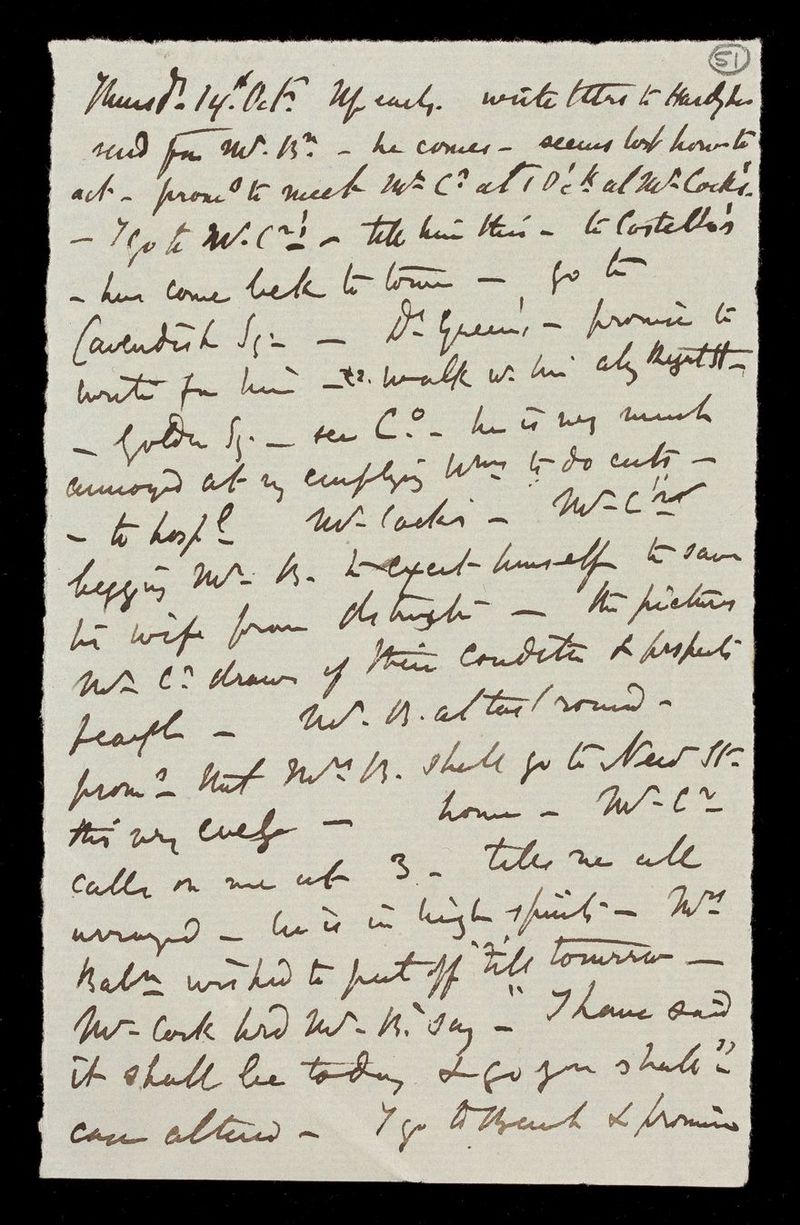 51
Thursd. 14th. Octr. Up early. write to
send for Mr. Bn. - he comes - seems lost how to
act - proms to meet Mr Cn at 1 O'ck at Mr Cock's -
- I go to Mr. Cn's - tell him this - to Costello's
- has come back to town - go to
Cavendish Sq. - - Dr Green's - promise to
write for him - walk w. him
- Golden Sq. - see Co. - he is very much
annoyed at my employing to do cuts -
- to hospl Mr Cock's - Mr Cn's
begging Mr. B. to exert himself to save
his wife from - the pictures
Mr Cn draws of their condition & prospects
- Mr. B. at last round -
proms that Mrs B. shall go to New St.
this very eveng - home - Mr Cn
calls on me at 3 - tells me all
arranged - he is in high spirits - Mrs
Babn wished to put off 'till tomorrow -
Mr Cock hrd Mr. B. say - "I have said
it shall be today & go you shall" -
case altered - I go to & promise